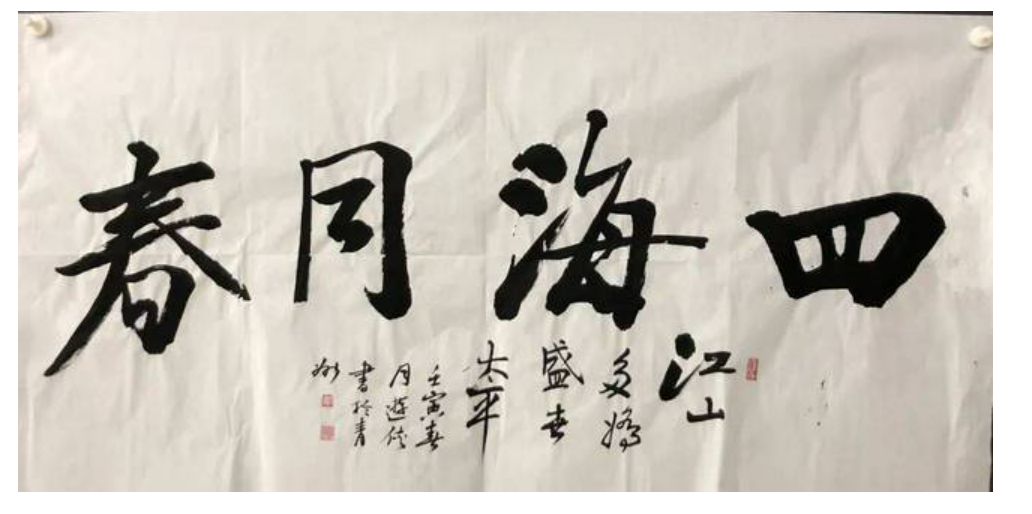 四海同春
江山
多娇
盛世
太平
壬寅春
月游俠
書於青